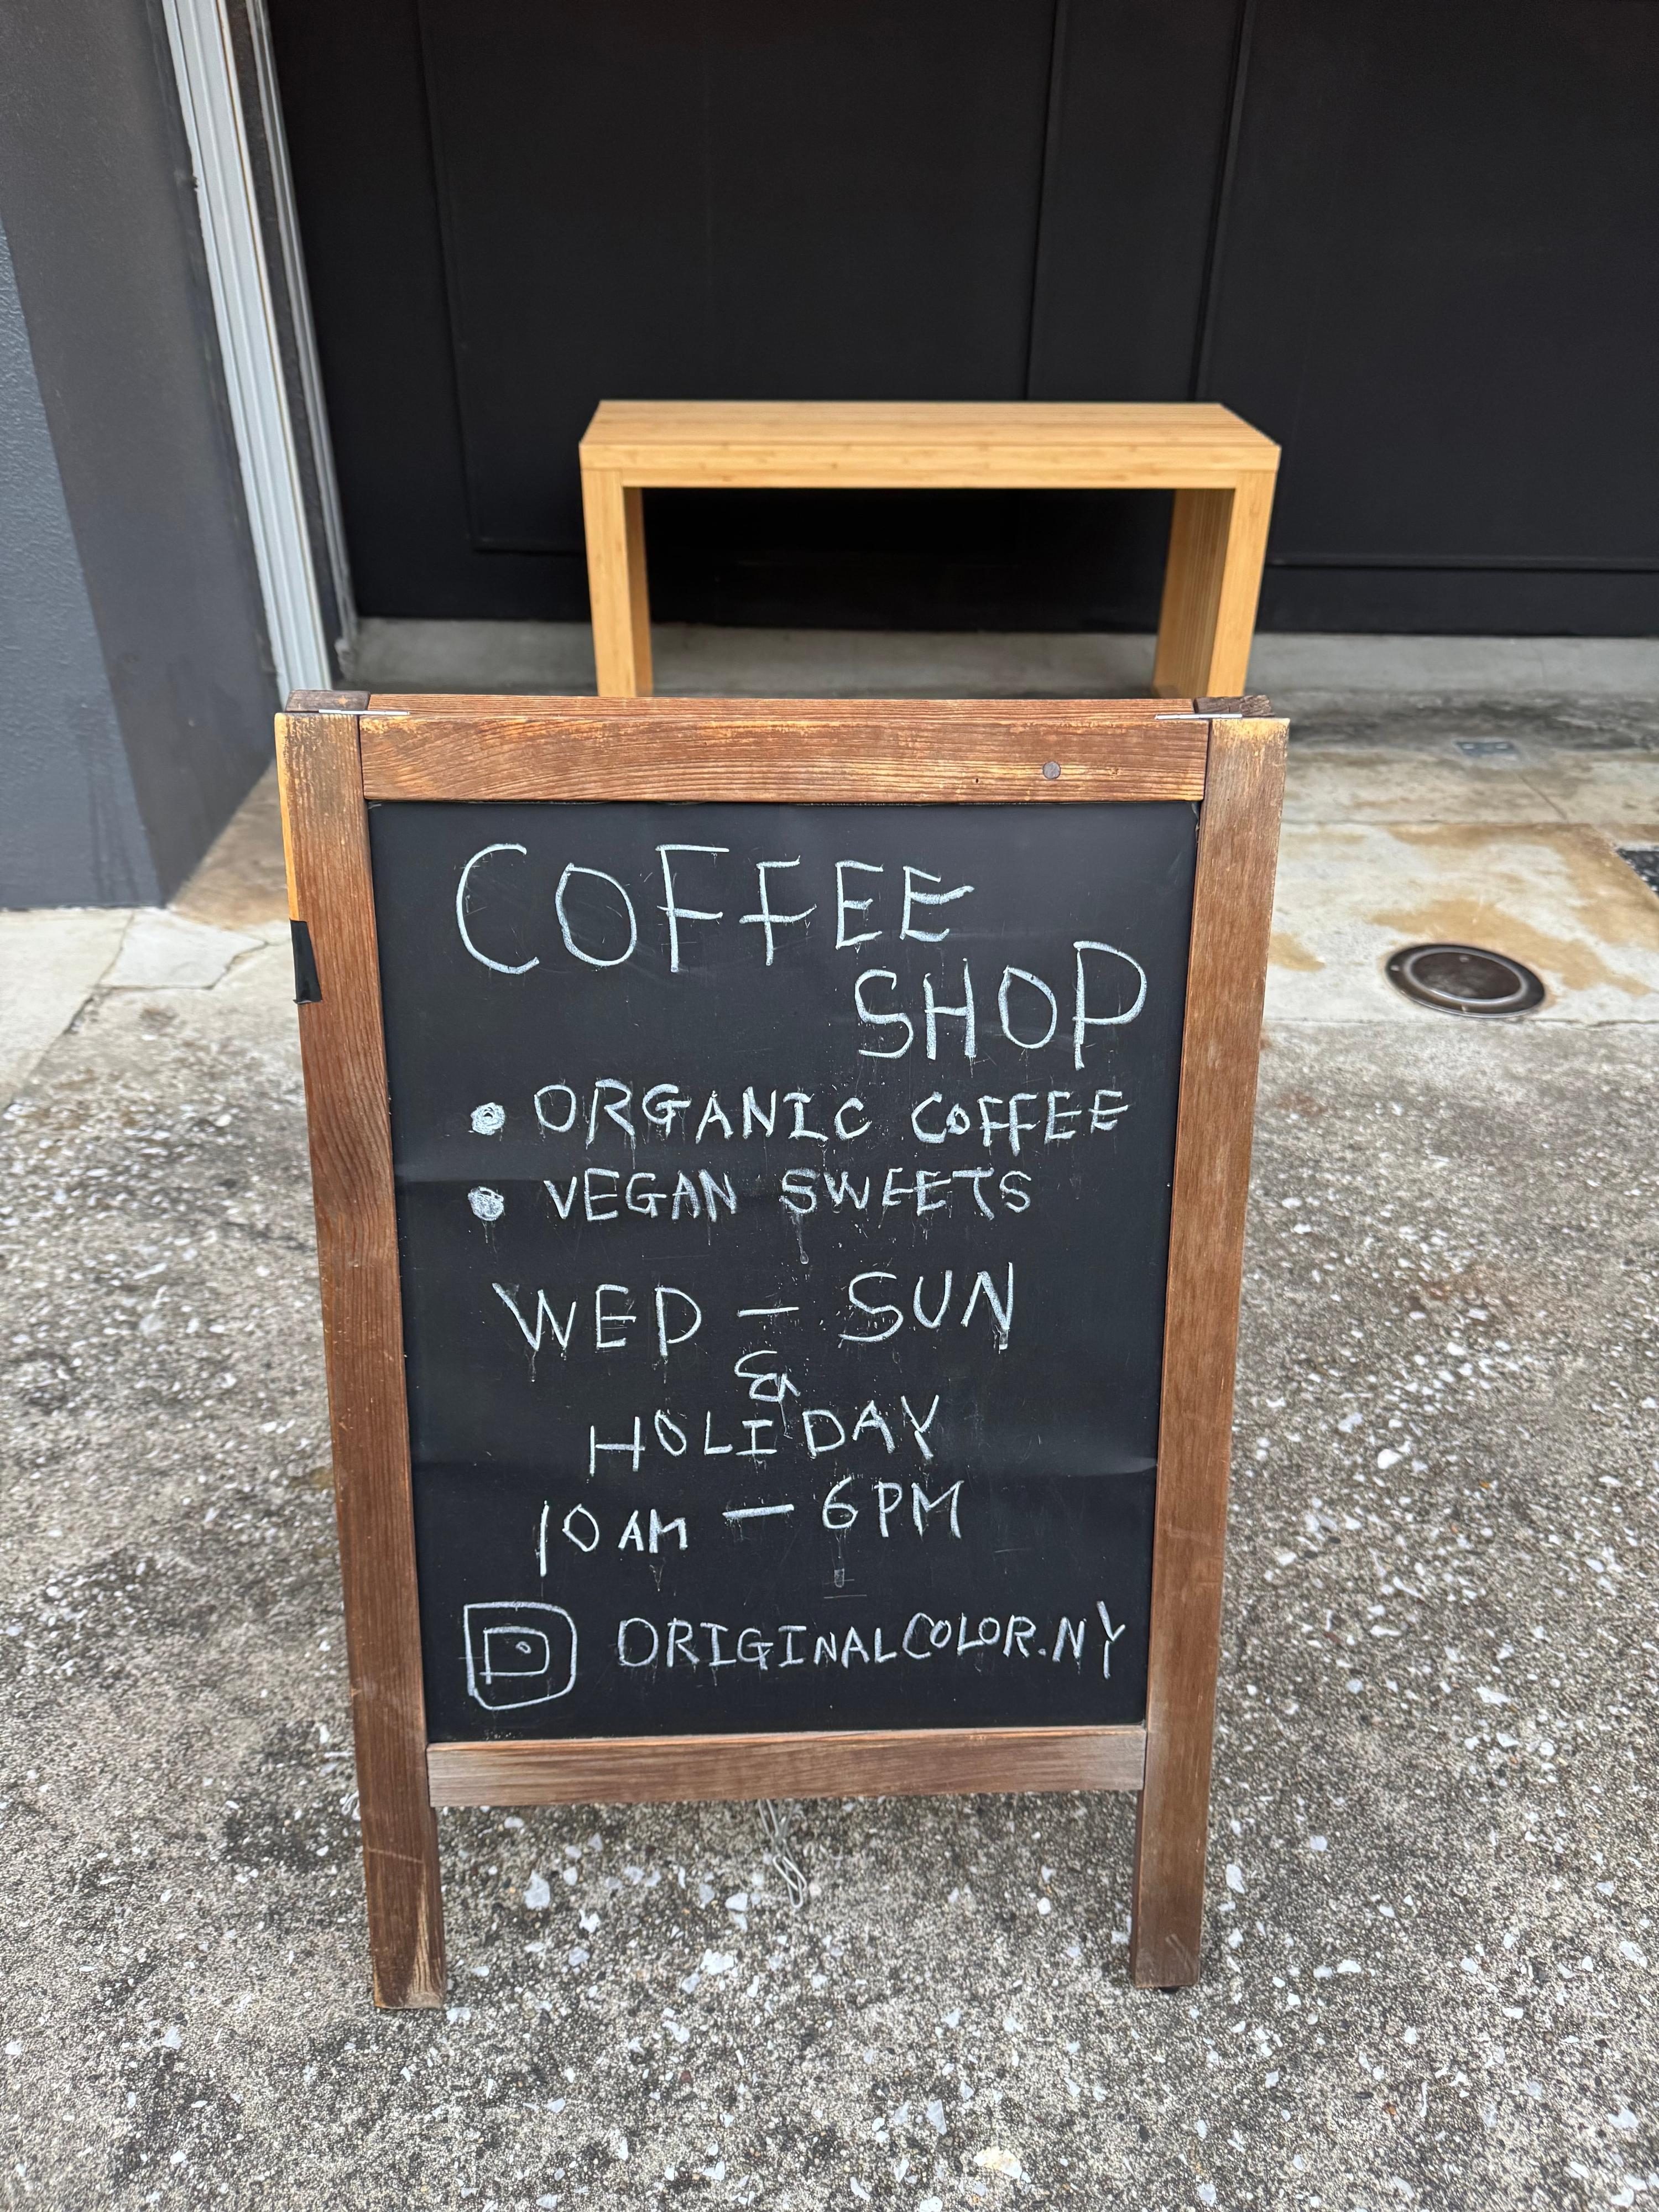 COFFEE
SHOP
• ORGANIC COFFEE
• VEGAN SWEETS
WED — SUN
&
HOLIDAY
10AM — 6PM
ORIGINALCOLOR.NY